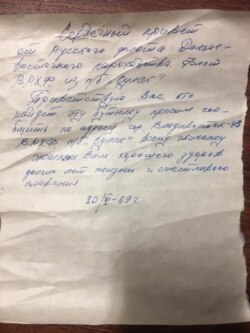 Сердечный привет
от Русского флота Дальне-
восточного пароходства. Флот
ВРХФ из п/б "Сулак"
Приветствую Вас, кто
найдет эту бутылку просим соо
бщить по адресу гор Владивосток-43
ВРХФ п/б "Сулак" всему экипажу
Желаем Вам хорошего здоровья
долгих лет жизни и счастливого
плавания
20/VI-69 г.